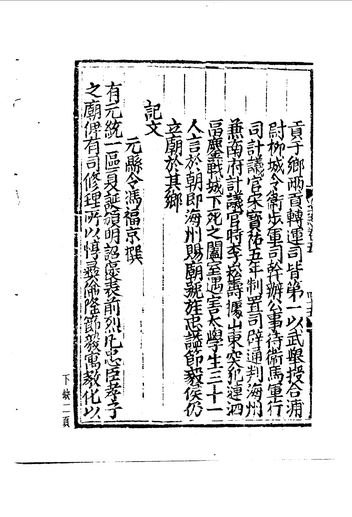 貢子鄉兩貢轉運司皆第一以武舉授合浦
尉柳城令衛步軍司幹辦公事待衛馬軍行
司計議官宋寶祐五年制置司辟通判海州
兼南府計議官特李松壽據山東突犯漣泗
鏖戰城下死之闔室遇害太學生三十一
人言於朝即海州賜廟號旌忠謚節毅侯仍
立廟於其鄉
記文
元縣令馮福京撰
有元統一區夏誕頒明詔褒表前烈凡忠臣孝子
之廟俾有司修理所以惇彞倫隆節毅寓教化以
下缺二頁